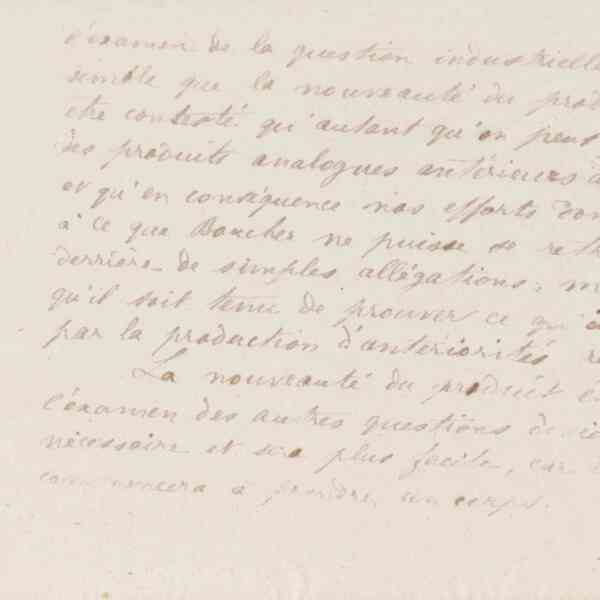 l'examen de la question industrielle
semble que la nouveauté du prod
être contesté qu'autant qu'on peut
des produits analogues antérieurs a
et qu'en conséquence nos efforts
à ce que Boucher ne puisse se
derrière de simples allégations, m
qu'il soit tenu de prouver ce qu'
par la production d'antériorités
La nouveauté du produit
l'examen des autres questions
nécessaire et sera plus facile, car
commencera à prendre un corps.